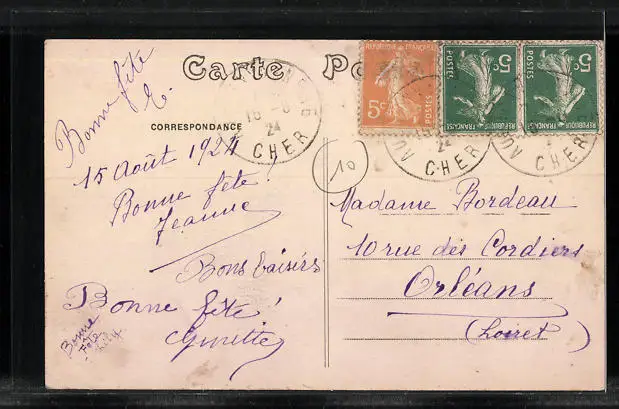 Carte Po
CORRESPONDANCE
Bonne fête
15 août 1924
Bonne fête !
Jeanne
Bons baisers
Bonne fête !
Ginette
Bonne
Fête
Lily
10
Madame Bordeau
10 rue des Cordiers
Orléans
(Loiret)
REPUBLIQUE FRANÇAISE
5c
POSTES
REPUBLIQUE FRANÇAISE
5c
POSTES
REPUBLIQUE FRANÇAISE
5c
POSTES
24
CHER
24
CHER
CHER